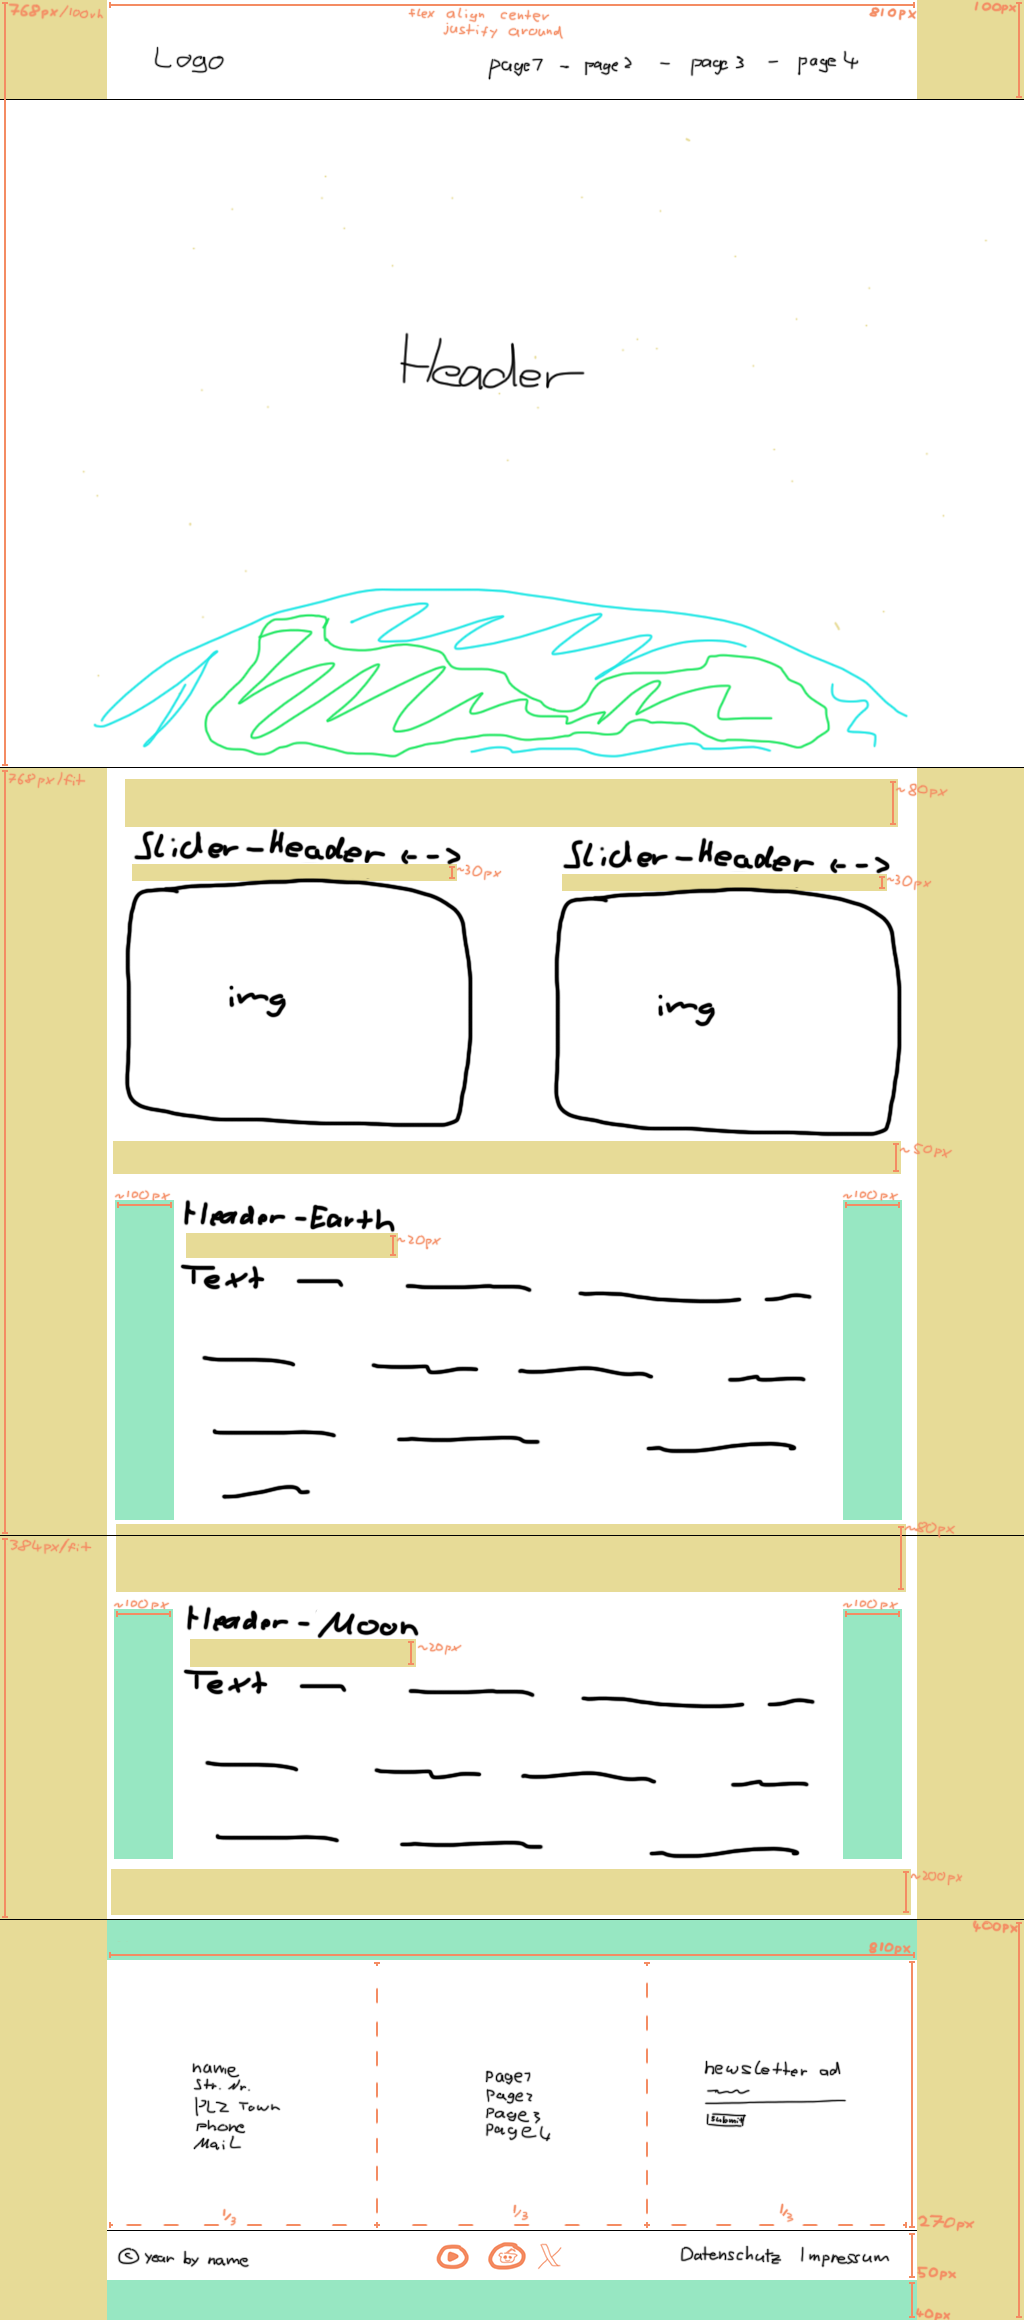 768px/100vh
flex align center
justify around
810px
100px
Logo
page1 - page2 - page3 - page4
Header
768px/fit
~80px
Slider-Header <-->
~30px
Slider-Header <-->
~30px
img
img
~50px
~100px
~100px
Header-Earth
~20px
Text
~80px
384px/fit
~100px
~100px
Header-Moon
~20px
Text
~200px
400px
810px
name
Str. Nr.
PLZ Town
phone
Mail
page1
page2
page3
page4
newsletter ad
submit
1/3
1/3
1/3
270px
© year by name
X
Datenschutz Impressum
50px
40px